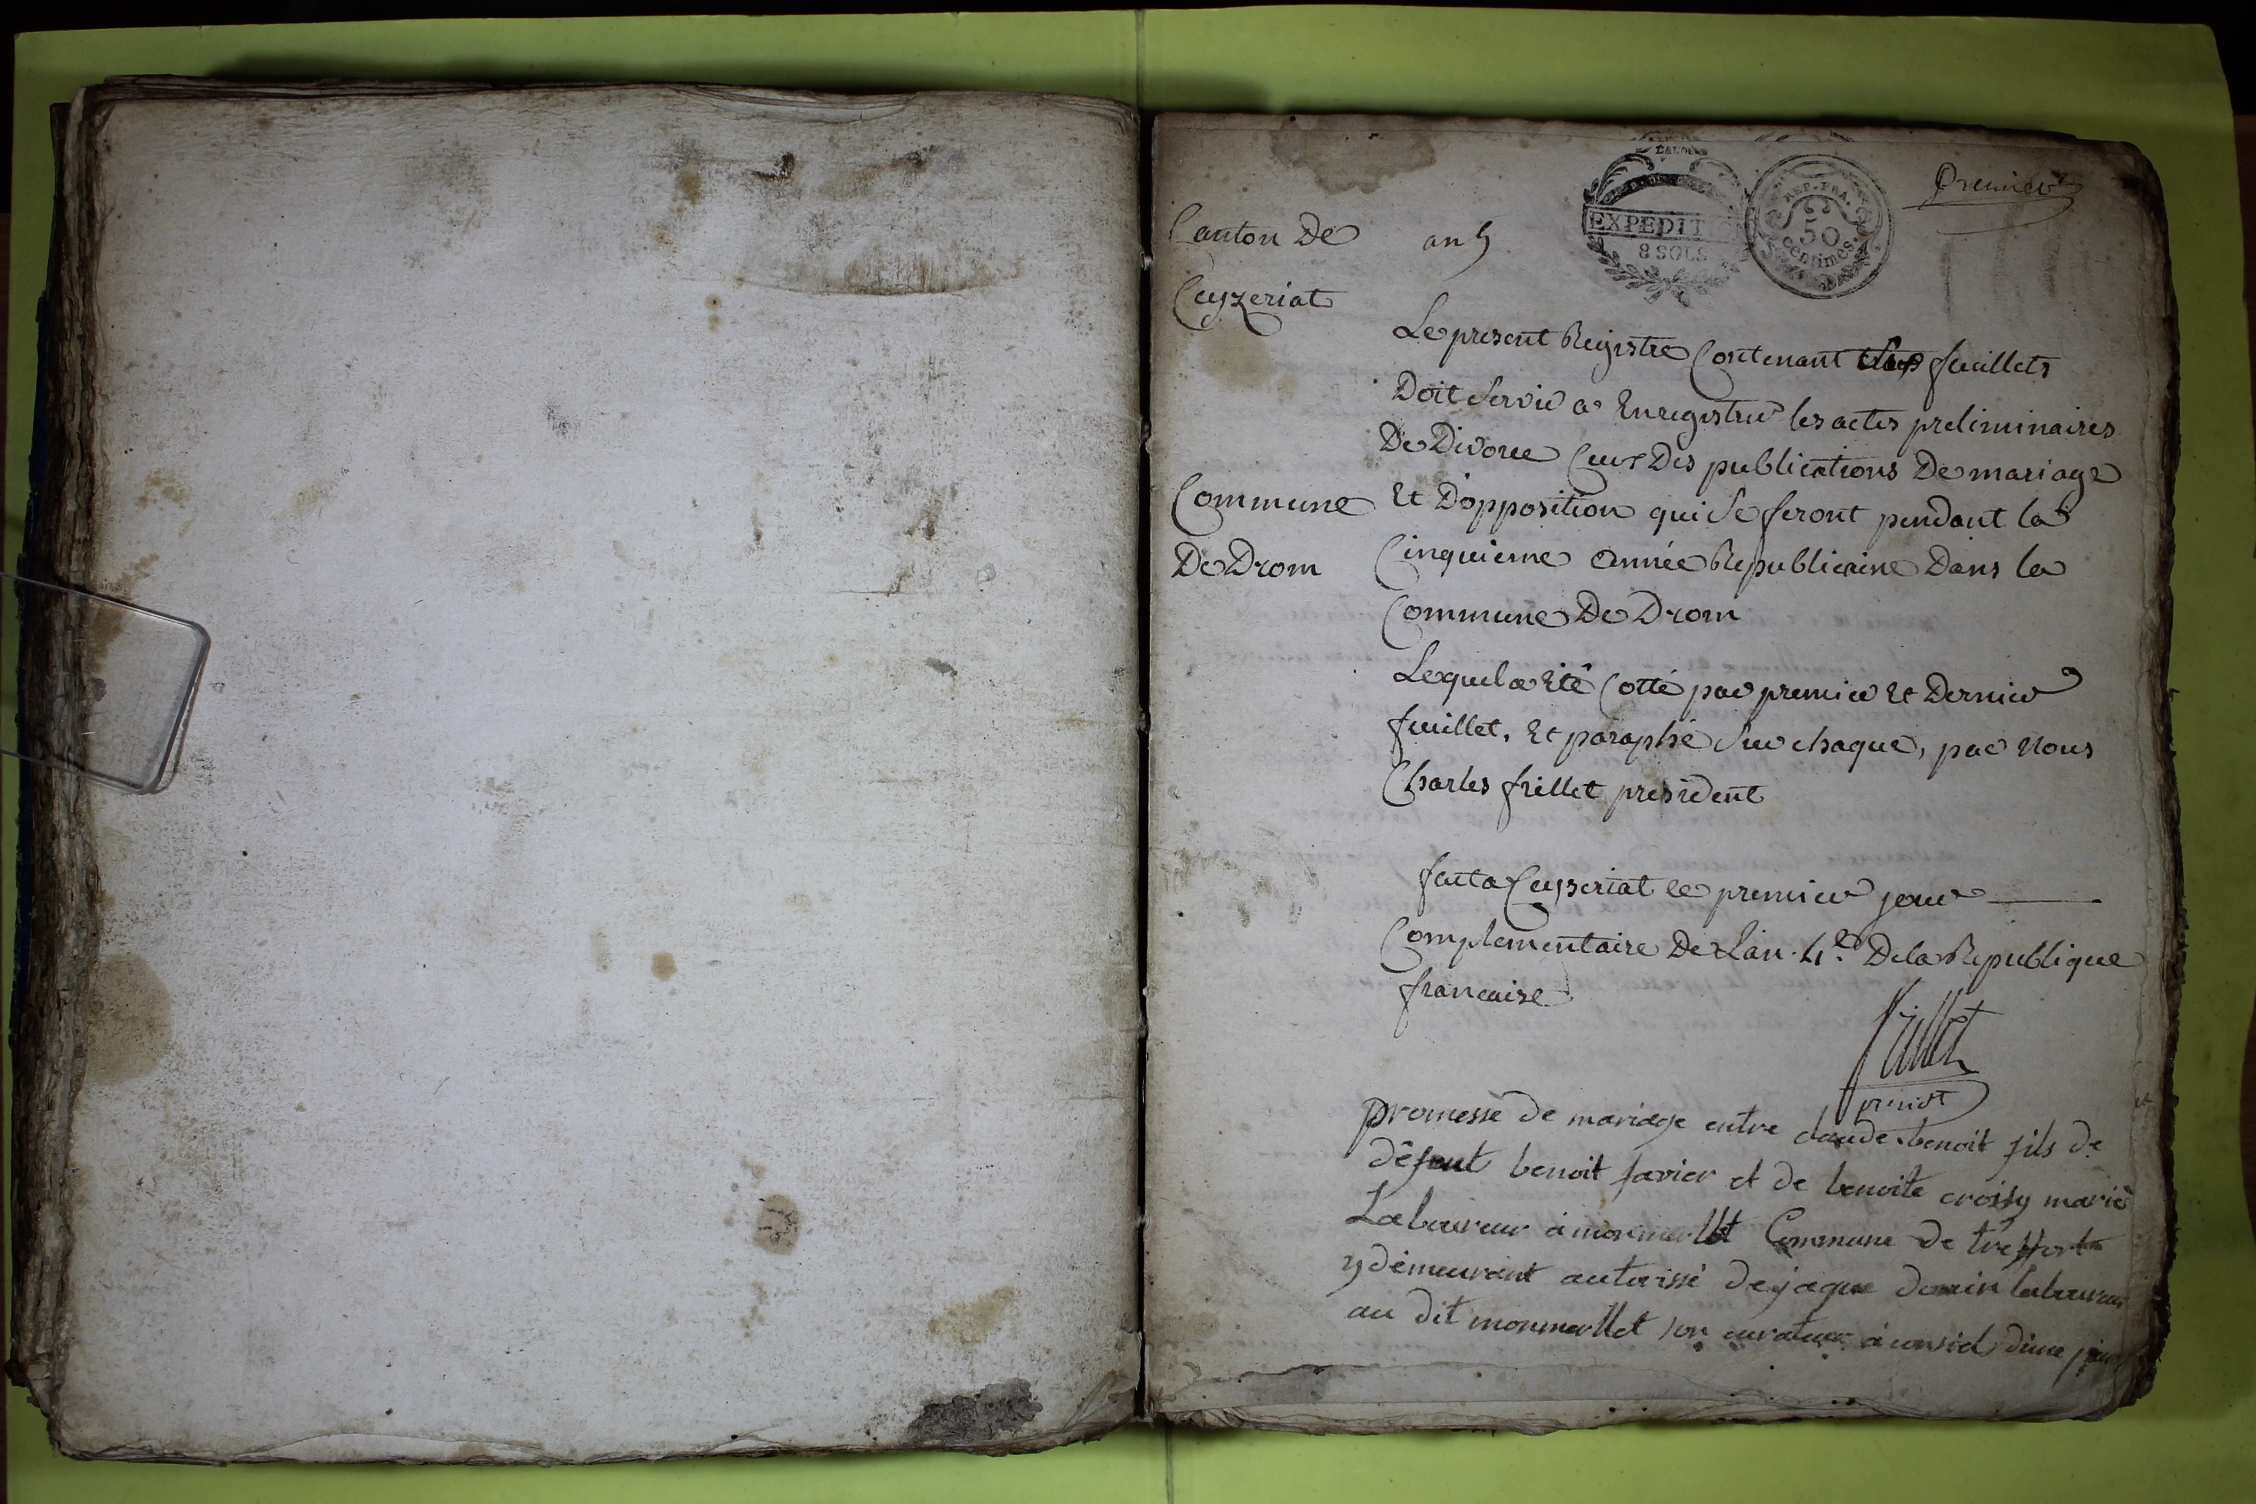 premier
DE LOI
EXPEDIT
8 SOLS
REP. FRA.
50
centimes.
Canton De
Ceyzeriat
an 5
Le present Registre Contenant feuillets
Doit Servir a Enregistrer les actes preliminaires
De Divorce Ceux Des publications De mariage
Et Dopposition qui Se feront pendant la
Cinquieme année Republicaine Dans la
Commune De Drom
Commune
De Drom
Lequel a Eté Cotté par premier Et Dernier
feuillet, Et paraphé Sur chaque, par Nous
Charles frillet president
fait a Ceyseriat le premier jour
Complementaire De Lan 4e. De la Republique
francaise
frillet
presidt
promesse de mariage entre claude benoit fils de
défeut benoit favier et de benoite croissy marié
Laboureur à monmerllet Commune de treffort
y démeurant autorissé de jaque donin laboureur
au dit monmerllet son curateur à conseil d'une part